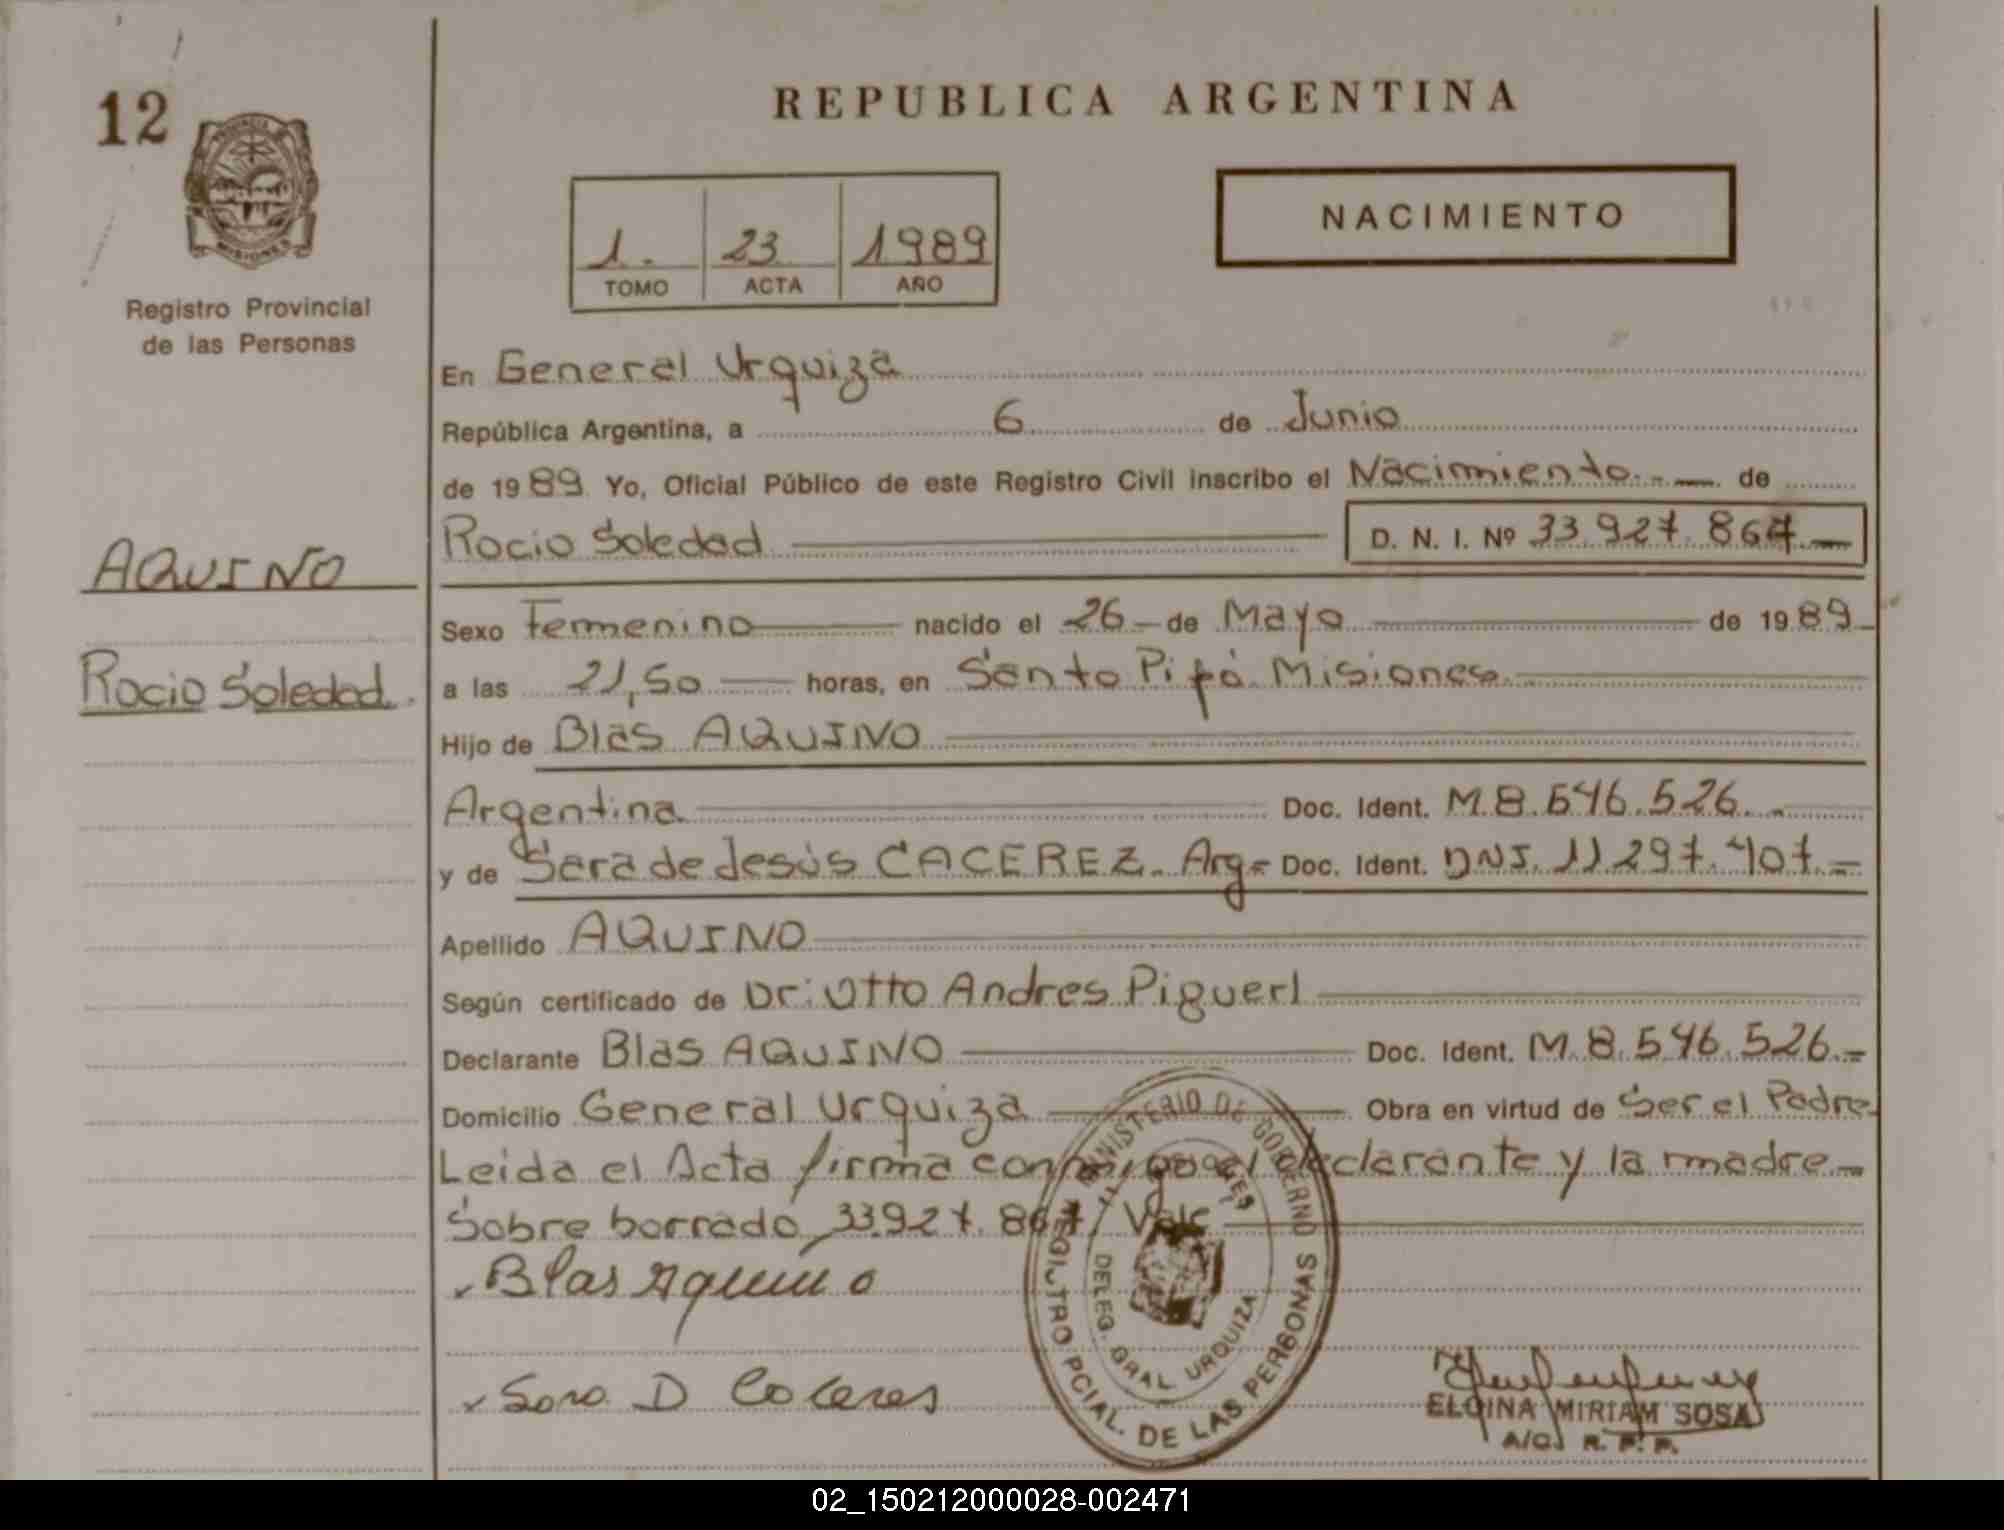 12
PROVINCIA DE
MISIONES
Registro Provincial
de las Personas
AQUINO
Rocio Soledad.
REPUBLICA ARGENTINA
1. 23 1989
TOMO ACTA AÑO
NACIMIENTO
En General Urquiza
República Argentina, a 6 de Junio
de 1989 Yo, Oficial Público de este Registro Civil inscribo el Nacimiento.-- de
Rocio Soledad D. N. I. Nº 33.927.867.-
Sexo Femenino nacido el 26 - de Mayo de 1989
a las 21,50 horas, en Santo Pipó Misiones
Hijo de Blas AQUINO
Argentina Doc. Ident. M.8.546.526.-
y de Sara de Jesús CACEREZ. Arg= Doc. Ident. DNI. 11.297.407.=
Apellido AQUINO
Según certificado de Dr: Otto Andres Piguerl
Declarante Blas AQUINO Doc. Ident. M.8.546.526.=
Domicilio General Urquiza Obra en virtud de Ser el Padre
Leida el Acta firma conmigo el declarante y la madre
Sobre borrado 33.927.867. Vale
Blas Aquino
Sara D Caceres
MINISTERIO DE GOBIERNO
REGISTRO PCIAL. DE LAS PERSONAS
DELEG. GRAL URQUIZA
ELOINA MIRIAM SOSA
A/C. R. P. P.
02_150212000028-002471